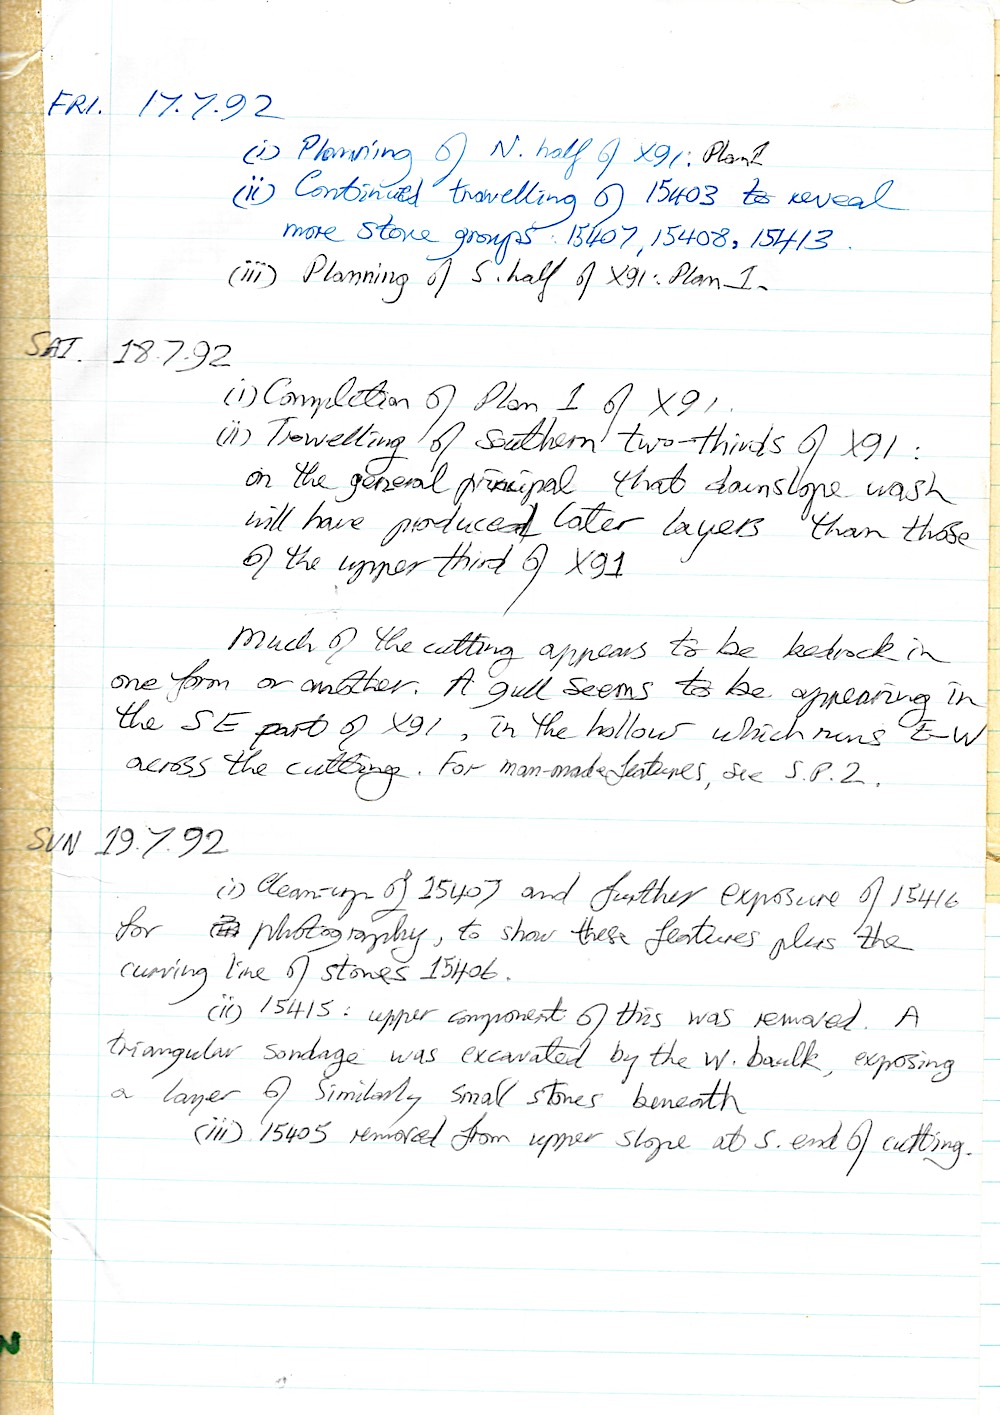 FRI. 17.7.92
(i) Planning of N. half of X91: Plan 1
(ii) Continued trowelling of 15403 to reveal
more stone groups: 15407, 15408, 15413.
(iii) Planning of S. half of X91: Plan 1.
SAT. 18.7.92
(i) Completion of Plan 1 of X91.
(ii) Trowelling of southern two-thirds of X91:
on the general principal that downslope wash
will have produced later layers than those
of the upper third of X91
Much of the cutting appears to be bedrock in
one form or another. A gull seems to be appearing in
the SE part of X91, in the hollow which runs E-W
across the cutting. For man-made features, see S.P.2.
SUN 19.7.92
(i) Clean-up of 15407 and further exposure of 15416
for photography, to show these features plus the
curving line of stones 15406.
(ii) 15415: upper component of this was removed. A
triangular sondage was excavated by the W. baulk, exposing
a layer of similarly small stones beneath
(iii) 15405 removed from upper slope at S. end of cutting.
N